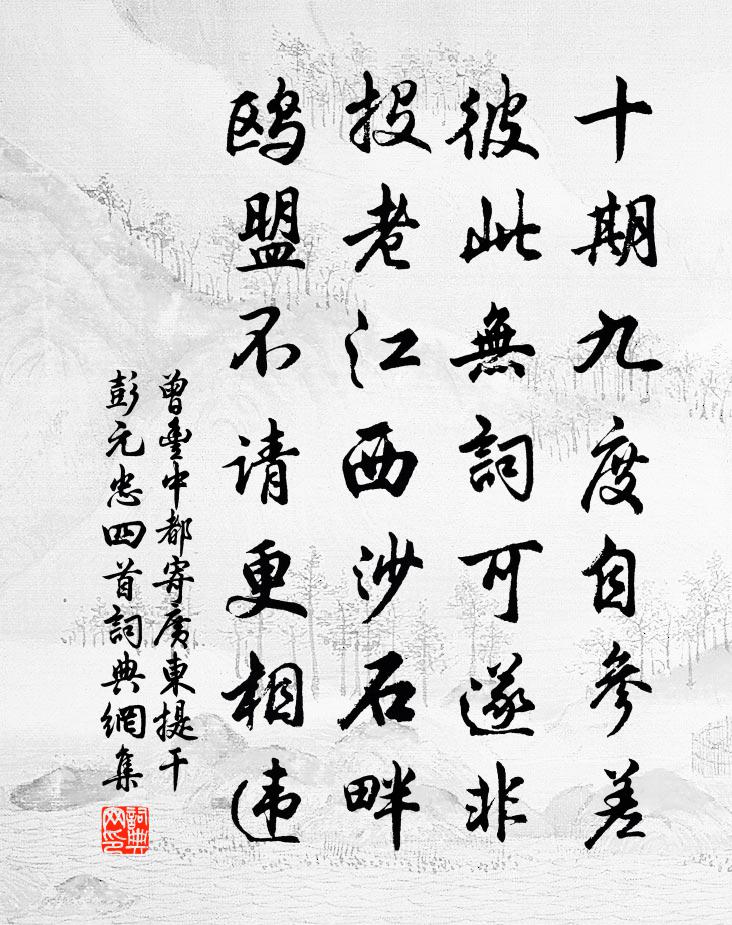 十期九度自參差
彼此無詞可遂非
投老江西沙石畔
鸥盟不请更相违
曾豐中都寄廣東提干
彭元忠四首詞典網集
詞典網印